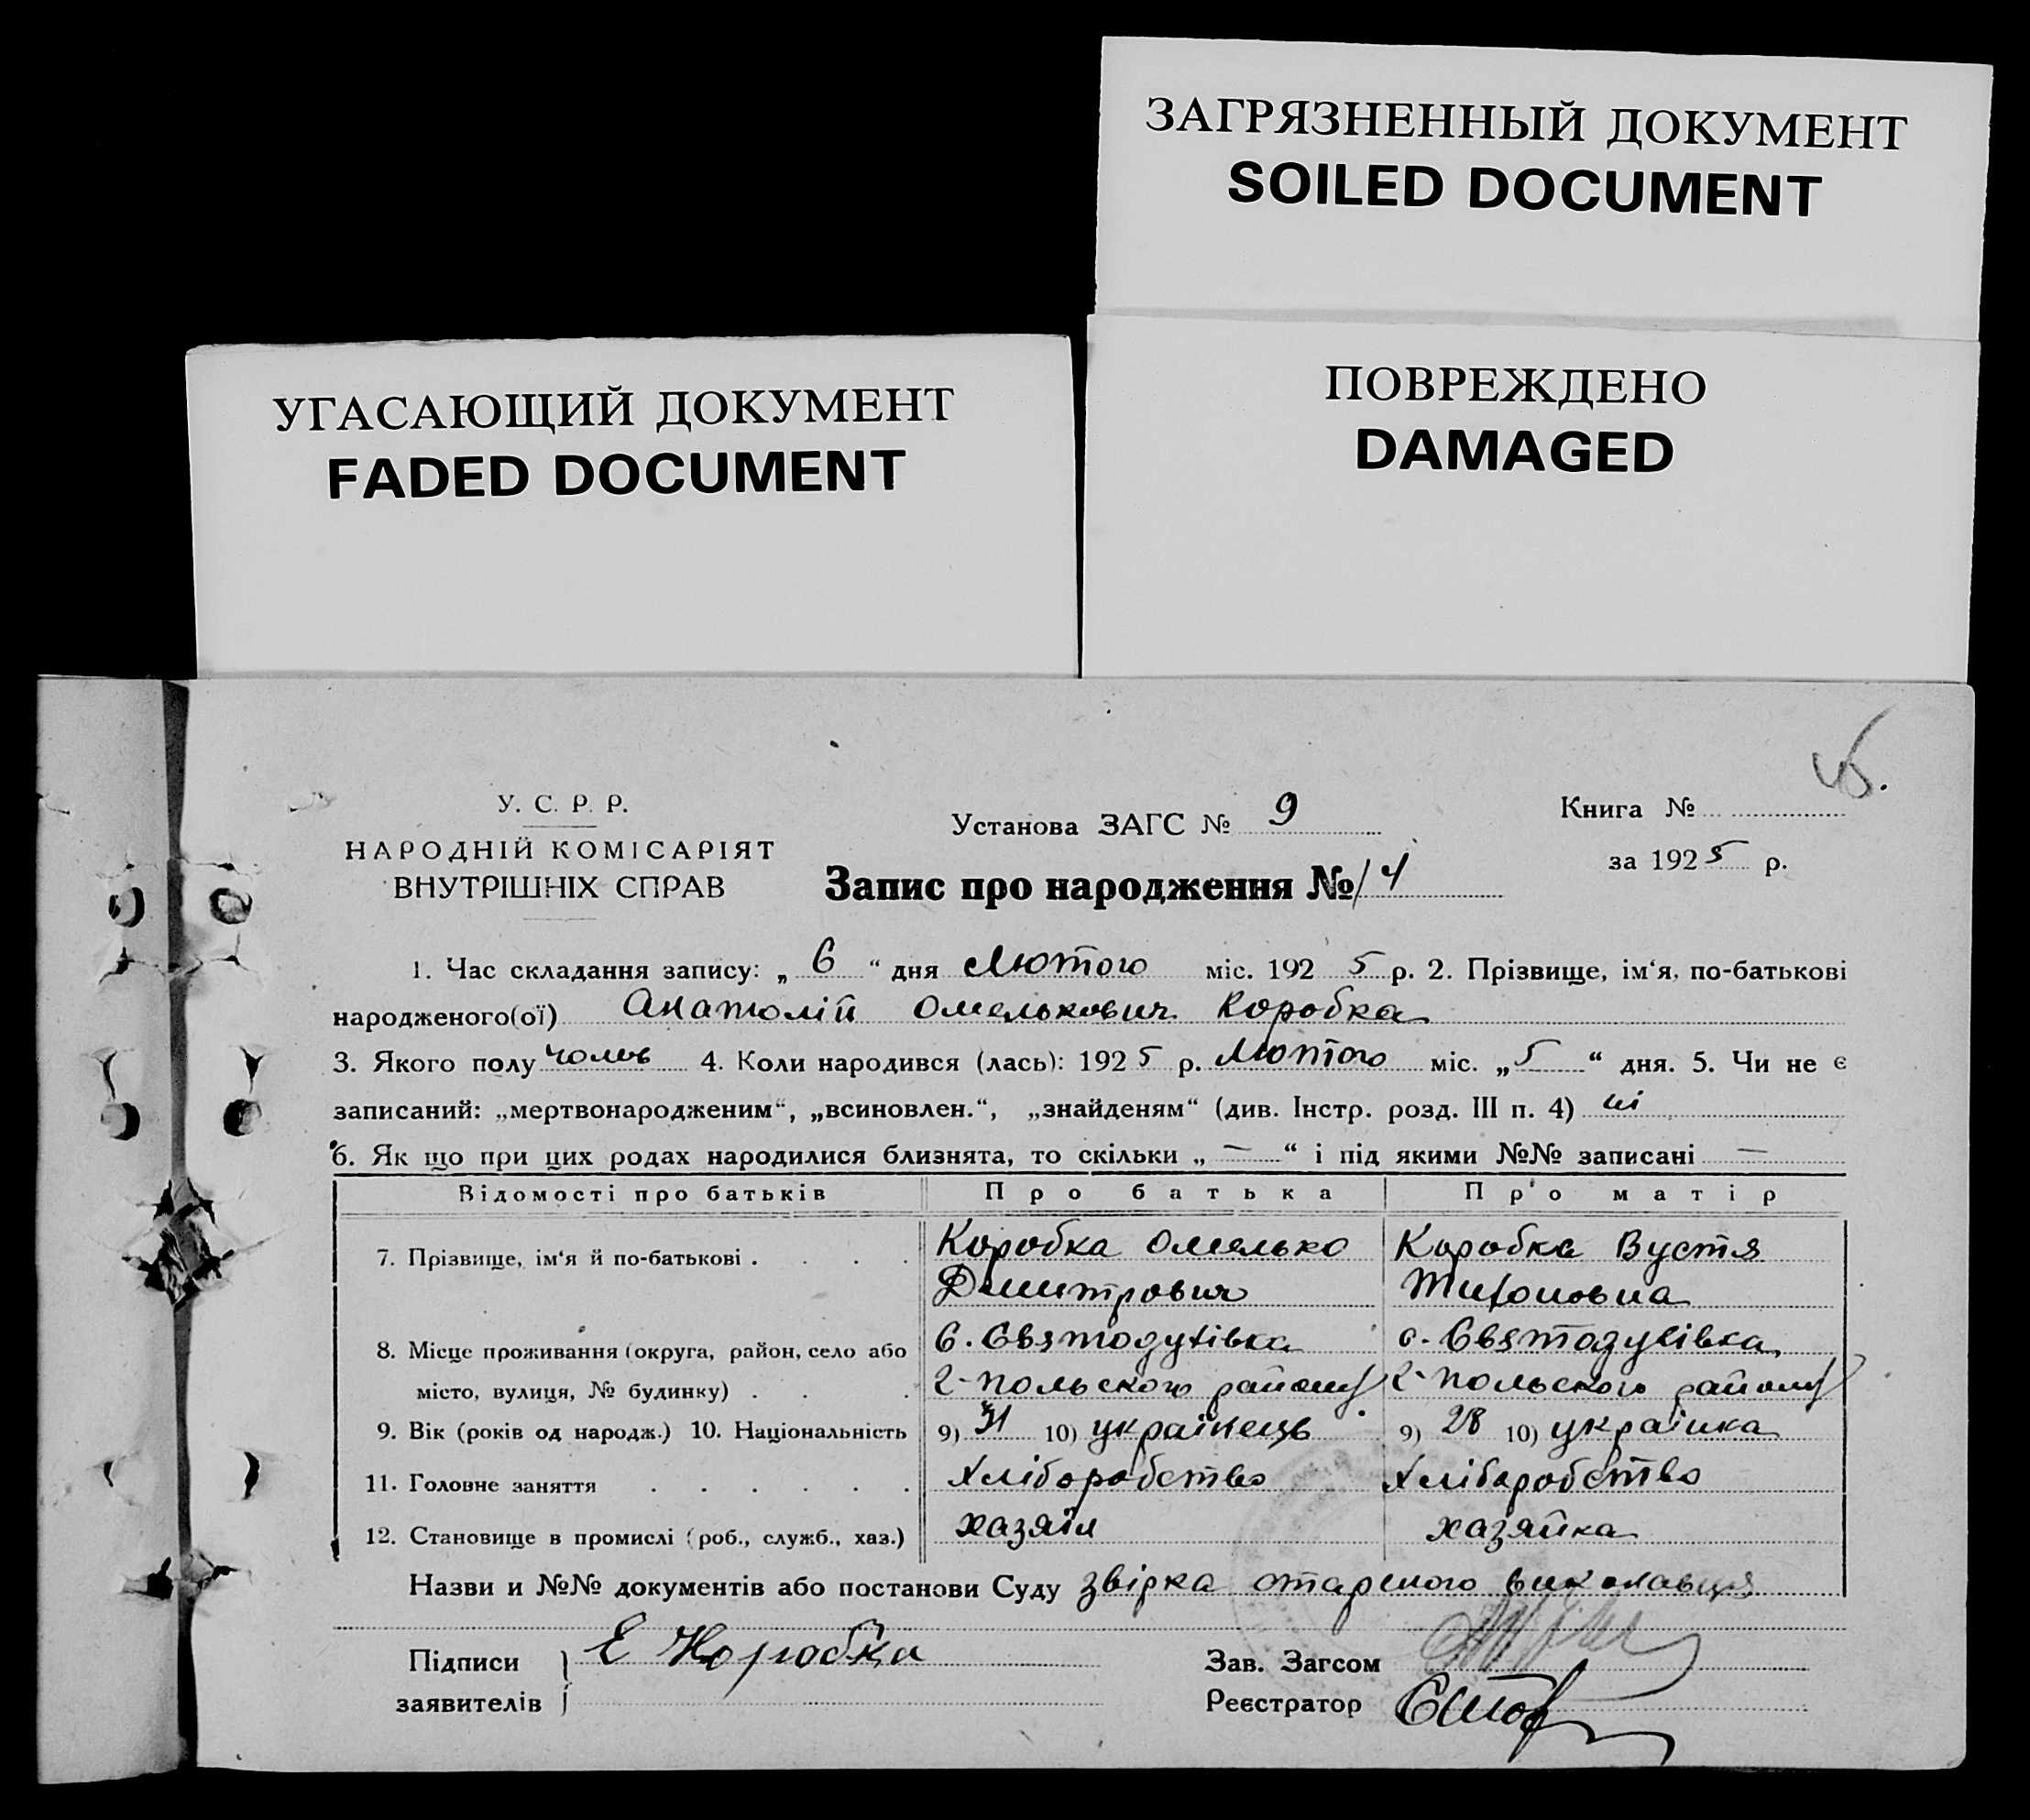 ЗАГРЯЗНЕННЫЙ ДОКУМЕНТ
SOILED DOCUMENT
УГАСАЮЩИЙ ДОКУМЕНТ
FADED DOCUMENT
ПОВРЕЖДЕНО
DAMAGED
У. С. Р. Р.
НАРОДНІЙ КОМІСАРІЯТ
ВНУТРІШНІХ СПРАВ
Установа ЗАГС № 9
Запис про народження № 14
Книга №
за 1925 р.
1. Час складання запису: „ 6 “ дня Лютого міс. 192 5 р. 2. Прізвище, ім‘я, по-батькові
народженого(ої) Анатолій Омелькович Коробка
3. Якого полу чолов 4. Коли народився (лась): 192 5 р. Лютого міс. „ 5 “ дня. 5. Чи не є
записаний: „мертвонародженим“, „всиновлен.“, „знайденям“ (див. Інстр. розд. III п. 4) ні
6. Як що при цих родах народилися близнята, то скільки „ — “ і під якими №№ записані —
Відомості про батьків Про батька Про матір
7. Прізвище, ім‘я й по-батькові . . . . Коробка Омелько Коробка Вустя
Дмитрович Тихоновна
8. Місце проживання (округа, район, село або с. Святодухівка с. Святодухівка
місто, вулиця, № будинку) . . . Г-польского району Г-польского району
9. Вік (років од народж.) 10. Національність 9) 31 10) українець 9) 28 10) українка
11. Головне заняття . . . . . . Хліборобство Хліборобство
12. Становище в промислі (роб., служб., хаз.) хазяїн хазяйка
Назви и №№ документів або постанови Суду звірка виконавця
Підписи Е Коробка
заявителів
Зав. Загсом
Реєстратор